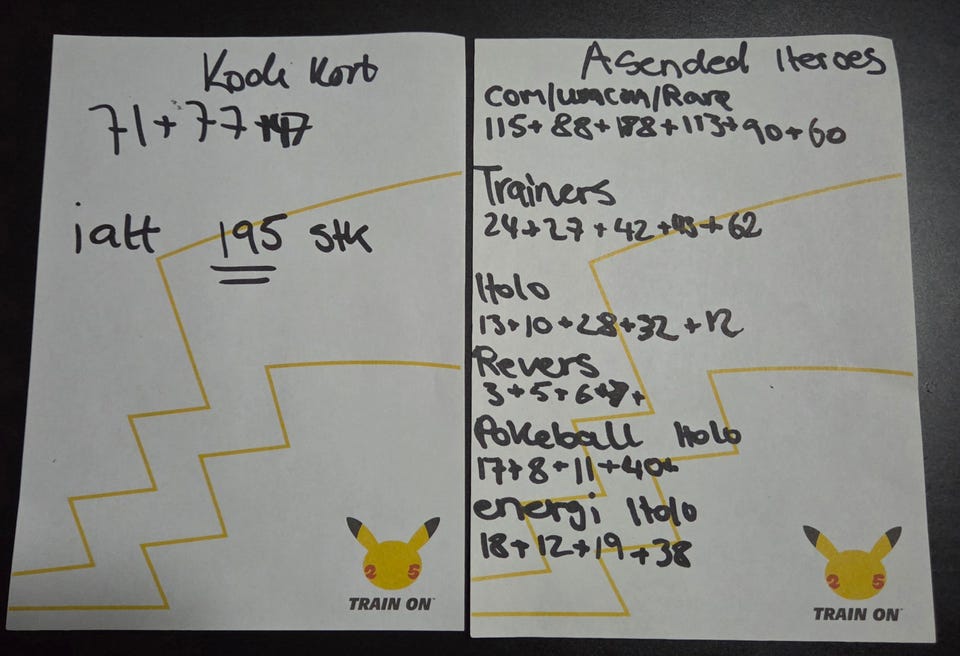 Kode Kort
71+77+47
ialt 195 stk
25
TRAIN ON™
Asended Heroes
com/uncom/Rare
115+88+188+113+90+60
Trainers
24+27+42+45+62
Holo
13+10+28+32+12
Revers
3+5+6+7+
Pokeball Holo
17+8+11+40
energi Holo
18+12+19+38
25
TRAIN ON™